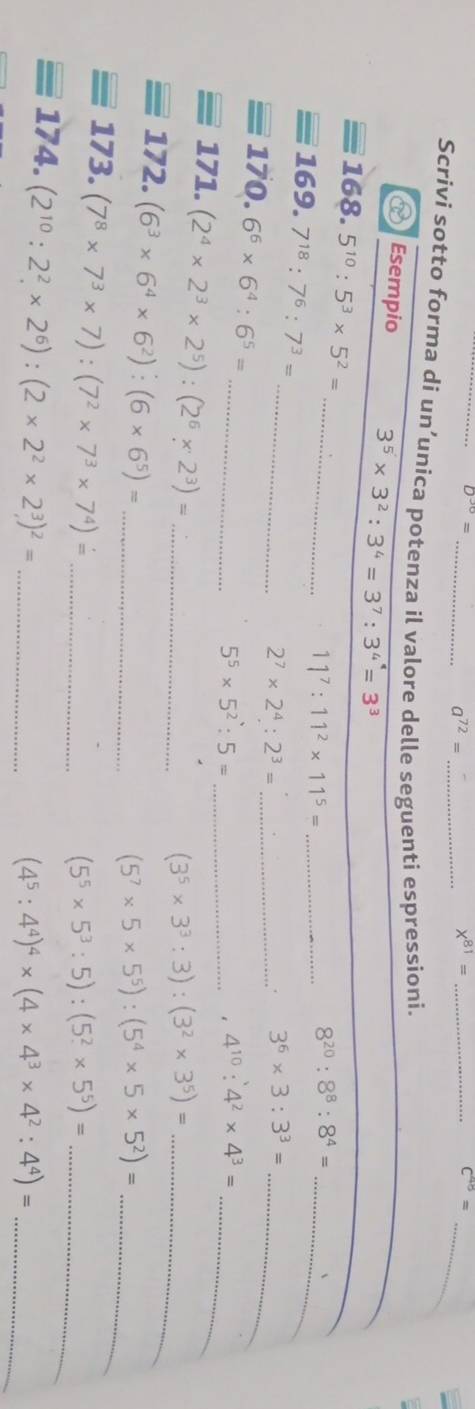 a⁷² = x⁸¹ =
Scrivi sotto forma di un'unica potenza il valore delle seguenti espressioni.
Esempio 3⁵ × 3² : 3⁴ = 3⁷ : 3⁴ = 3³
168. 5¹⁰ : 5³ × 5² = 11⁷ : 11² × 11⁵ = 8²⁰ : 8⁸ : 8⁴ =
169. 7¹⁸ : 7⁶ : 7³ = 2⁷ × 2⁴ : 2³ = 3⁶ × 3 : 3³ =
170. 6⁶ × 6⁴ : 6⁵ = 5⁵ × 5² : 5 = 4¹⁰ : 4² × 4³ =
171. (2⁴ × 2³ × 2⁵) : (2⁶ × 2³) = (3⁵ × 3³ : 3) : (3² × 3⁵) =
172. (6³ × 6⁴ × 6²) : (6 × 6⁵) = (5⁷ × 5 × 5⁵) : (5⁴ × 5 × 5²) =
173. (7⁸ × 7³ × 7) : (7² × 7³ × 7⁴) = (5⁵ × 5³ : 5) : (5² × 5⁵) =
174. (2¹⁰ : 2² × 2⁶) : (2 × 2² × 2³)² = (4⁵ : 4⁴)⁴ × (4 × 4³ × 4² : 4⁴) =